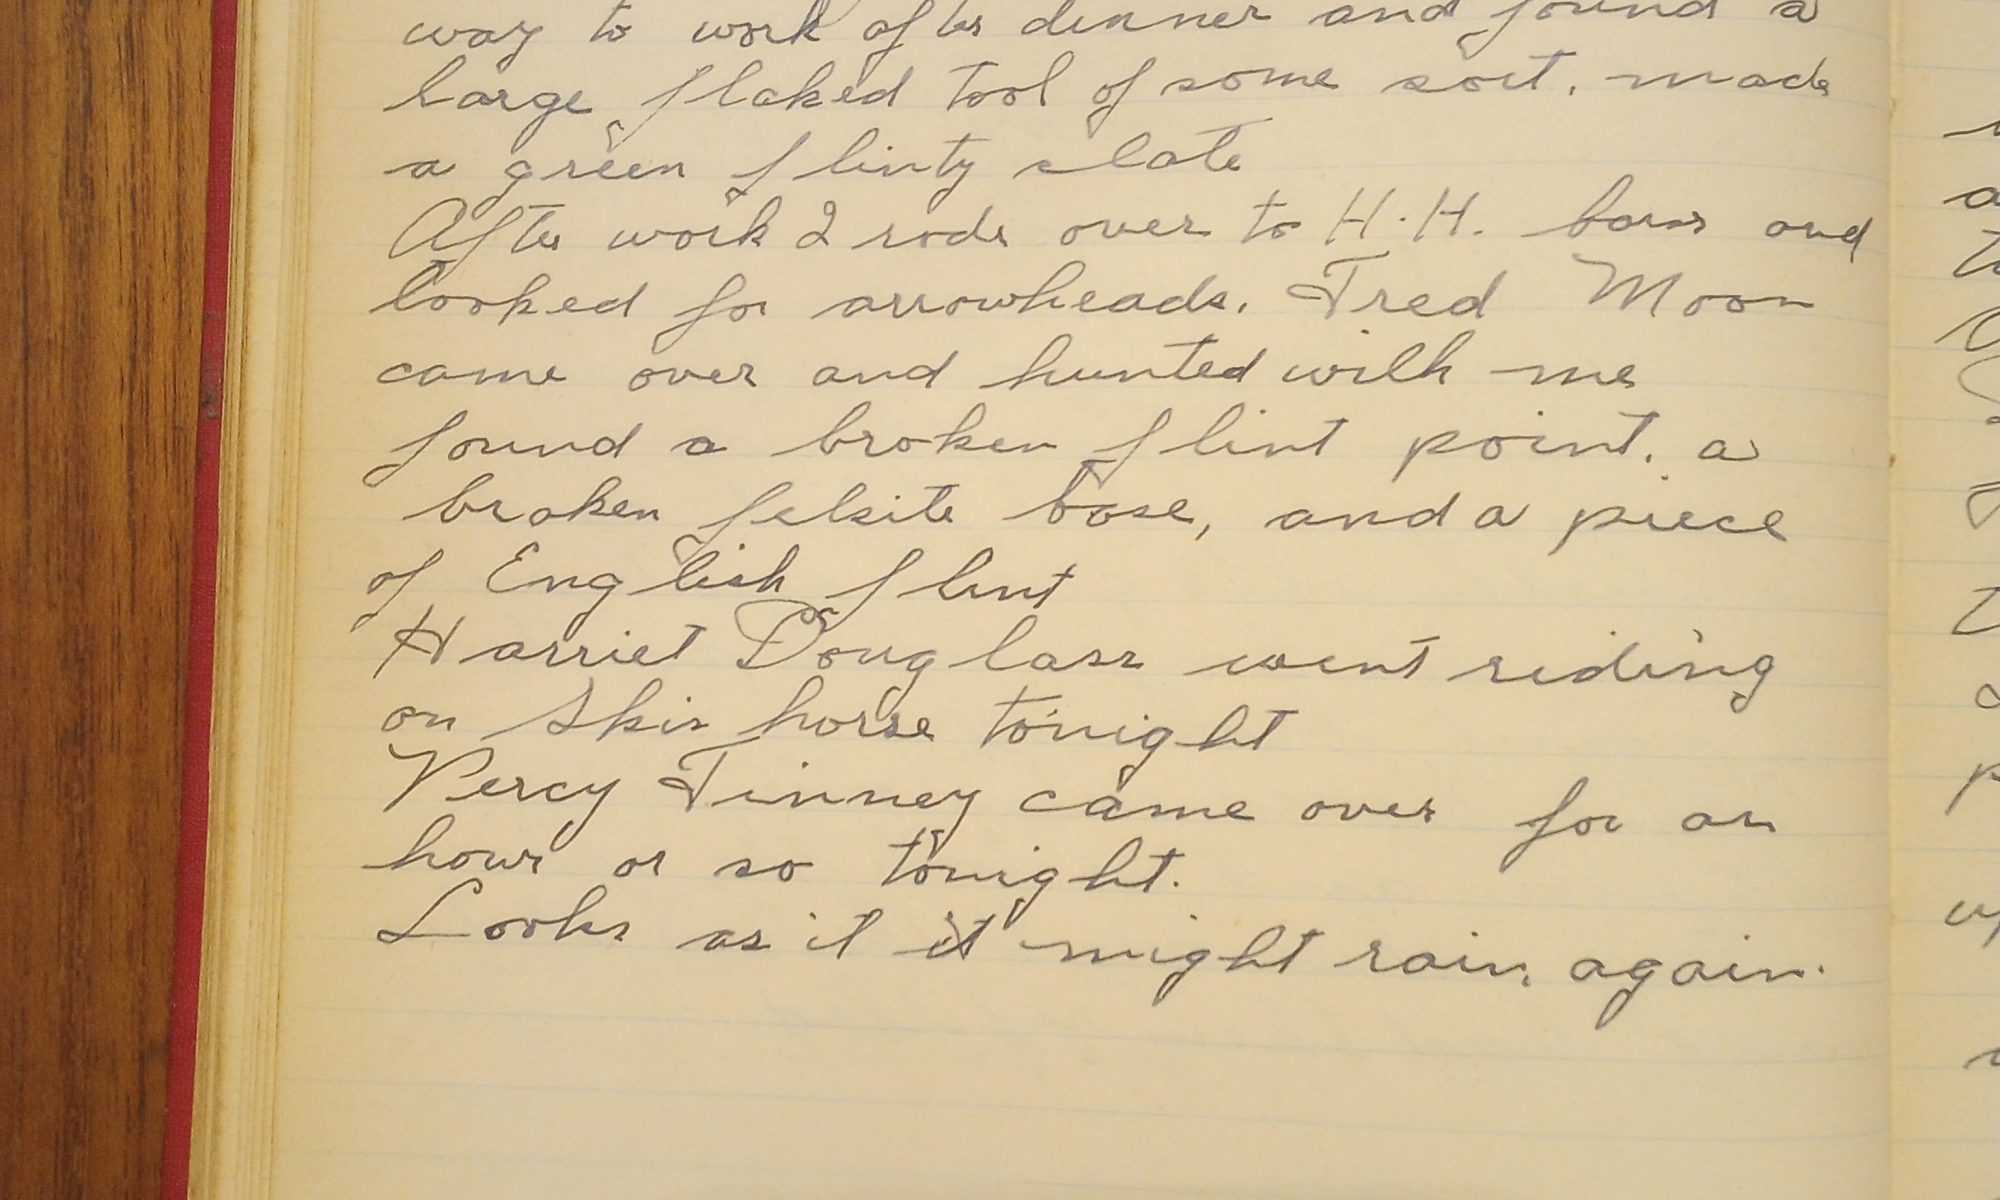 way to work after dinner and found a
large flaked tool of some sort. made
a green flinty slate
After work I rode over to H.H. bars and
looked for arrowheads. Fred Moon
came over and hunted with me
found a broken flint point. a
broken felsite base, and a piece
of English flint
Harriet Douglass went riding
on Skis horse tonight
Percy Tinney came over for an
hour or so tonight.
Looks as if it might rain again.